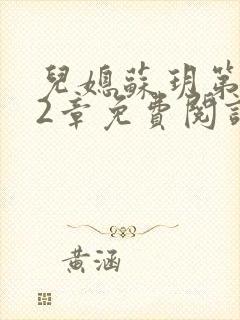 兒媳蘇玥第
2章免費閱讀
黃涵